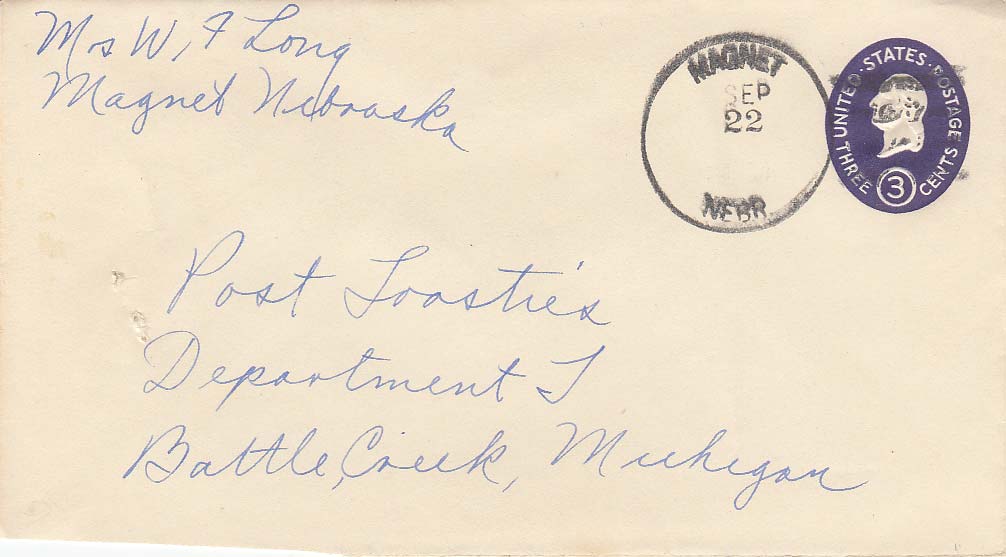 Mrs W, F Long
Magnet Nebraska
MAGNET
SEP
22
NEBR
UNITED · STATES · POSTAGE
THREE 3 CENTS
Post Toasties
Department T
Battle, Creek, Michigan